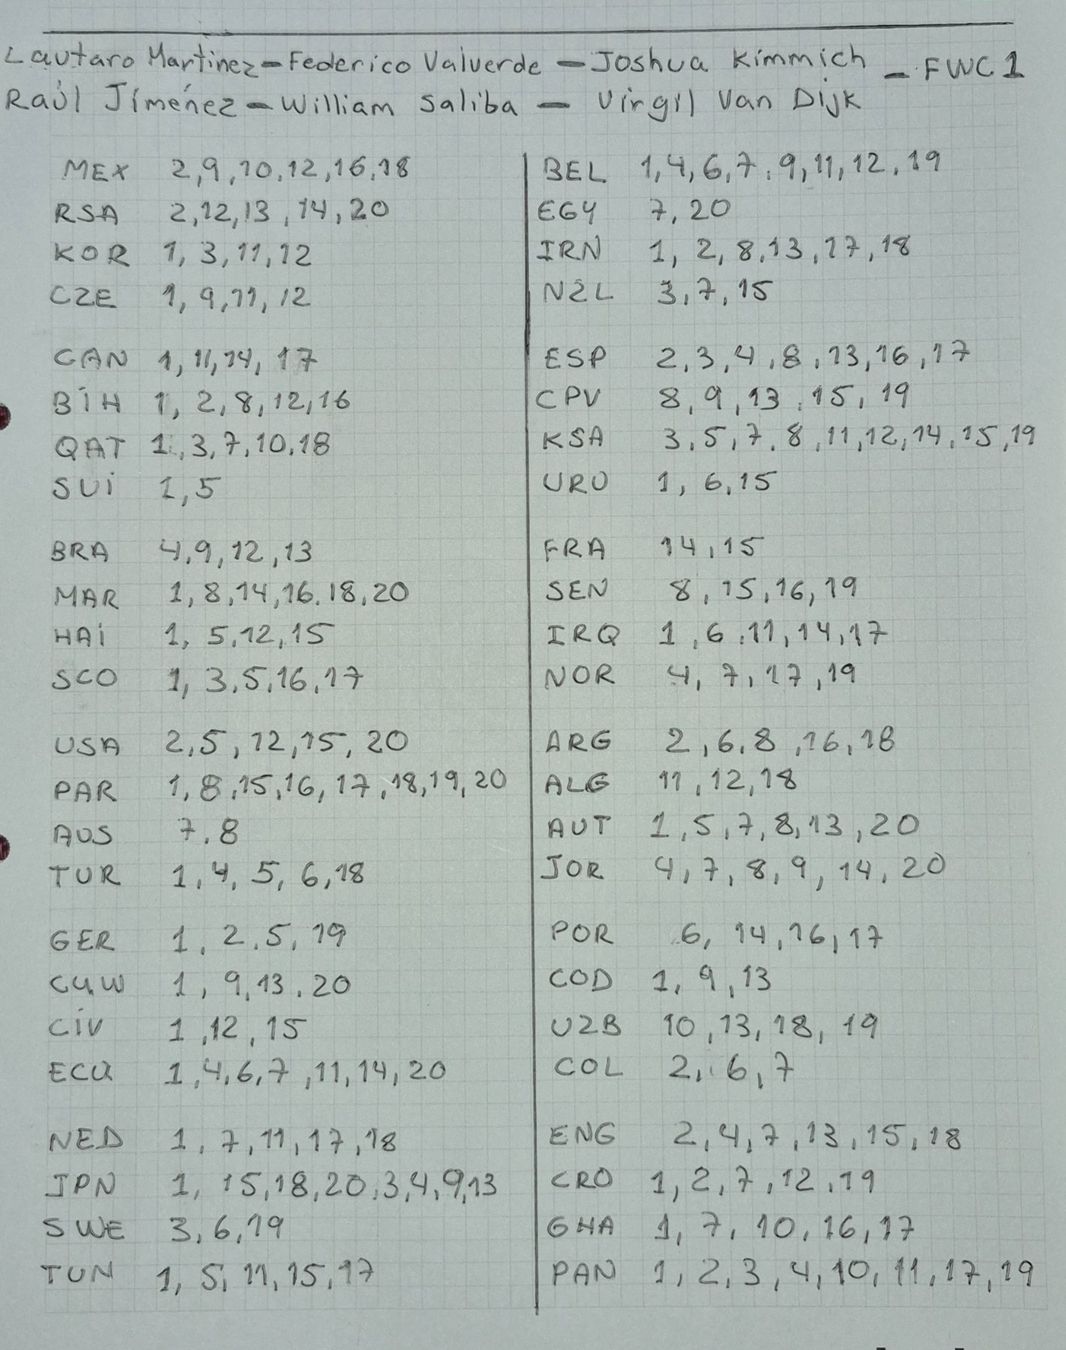 Lautaro Martínez - Federico Valverde - Joshua Kimmich - FWC1
Raúl Jímenez - William Saliba - Virgil Van Dijk
MEX 2,9,10,12,16,18
RSA 2,12,13,14,20
KOR 1,3,11,12
CZE 1,9,11,12
CAN 1,11,14,17
BIH 1,2,8,12,16
QAT 1,3,7,10,18
SUI 1,5
BRA 4,9,12,13
MAR 1,8,14,16,18,20
HAI 1,5,12,15
SCO 1,3,5,16,17
USA 2,5,12,15,20
PAR 1,8,15,16,17,18,19,20
AUS 7,8
TUR 1,4,5,6,18
GER 1,2,5,19
CUW 1,9,13,20
CIV 1,12,15
ECU 1,4,6,7,11,14,20
NED 1,7,11,17,18
JPN 1,15,18,20,3,4,9,13
SWE 3,6,19
TUN 1,5,11,15,17
BEL 1,4,6,7,9,11,12,19
EGY 7,20
IRN 1,2,8,13,17,18
NZL 3,7,15
ESP 2,3,4,8,13,16,17
CPV 8,9,13,15,19
KSA 3,5,7,8,11,12,14,15,19
URU 1,6,15
FRA 14,15
SEN 8,15,16,19
IRQ 1,6,11,14,17
NOR 4,7,17,19
ARG 2,6,8,16,18
ALG 11,12,18
AUT 1,5,7,8,13,20
JOR 4,7,8,9,14,20
POR 6,14,16,17
COD 1,9,13
UZB 10,13,18,19
COL 2,6,7
ENG 2,4,7,13,15,18
CRO 1,2,7,12,19
GHA 1,7,10,16,17
PAN 1,2,3,4,10,11,17,19